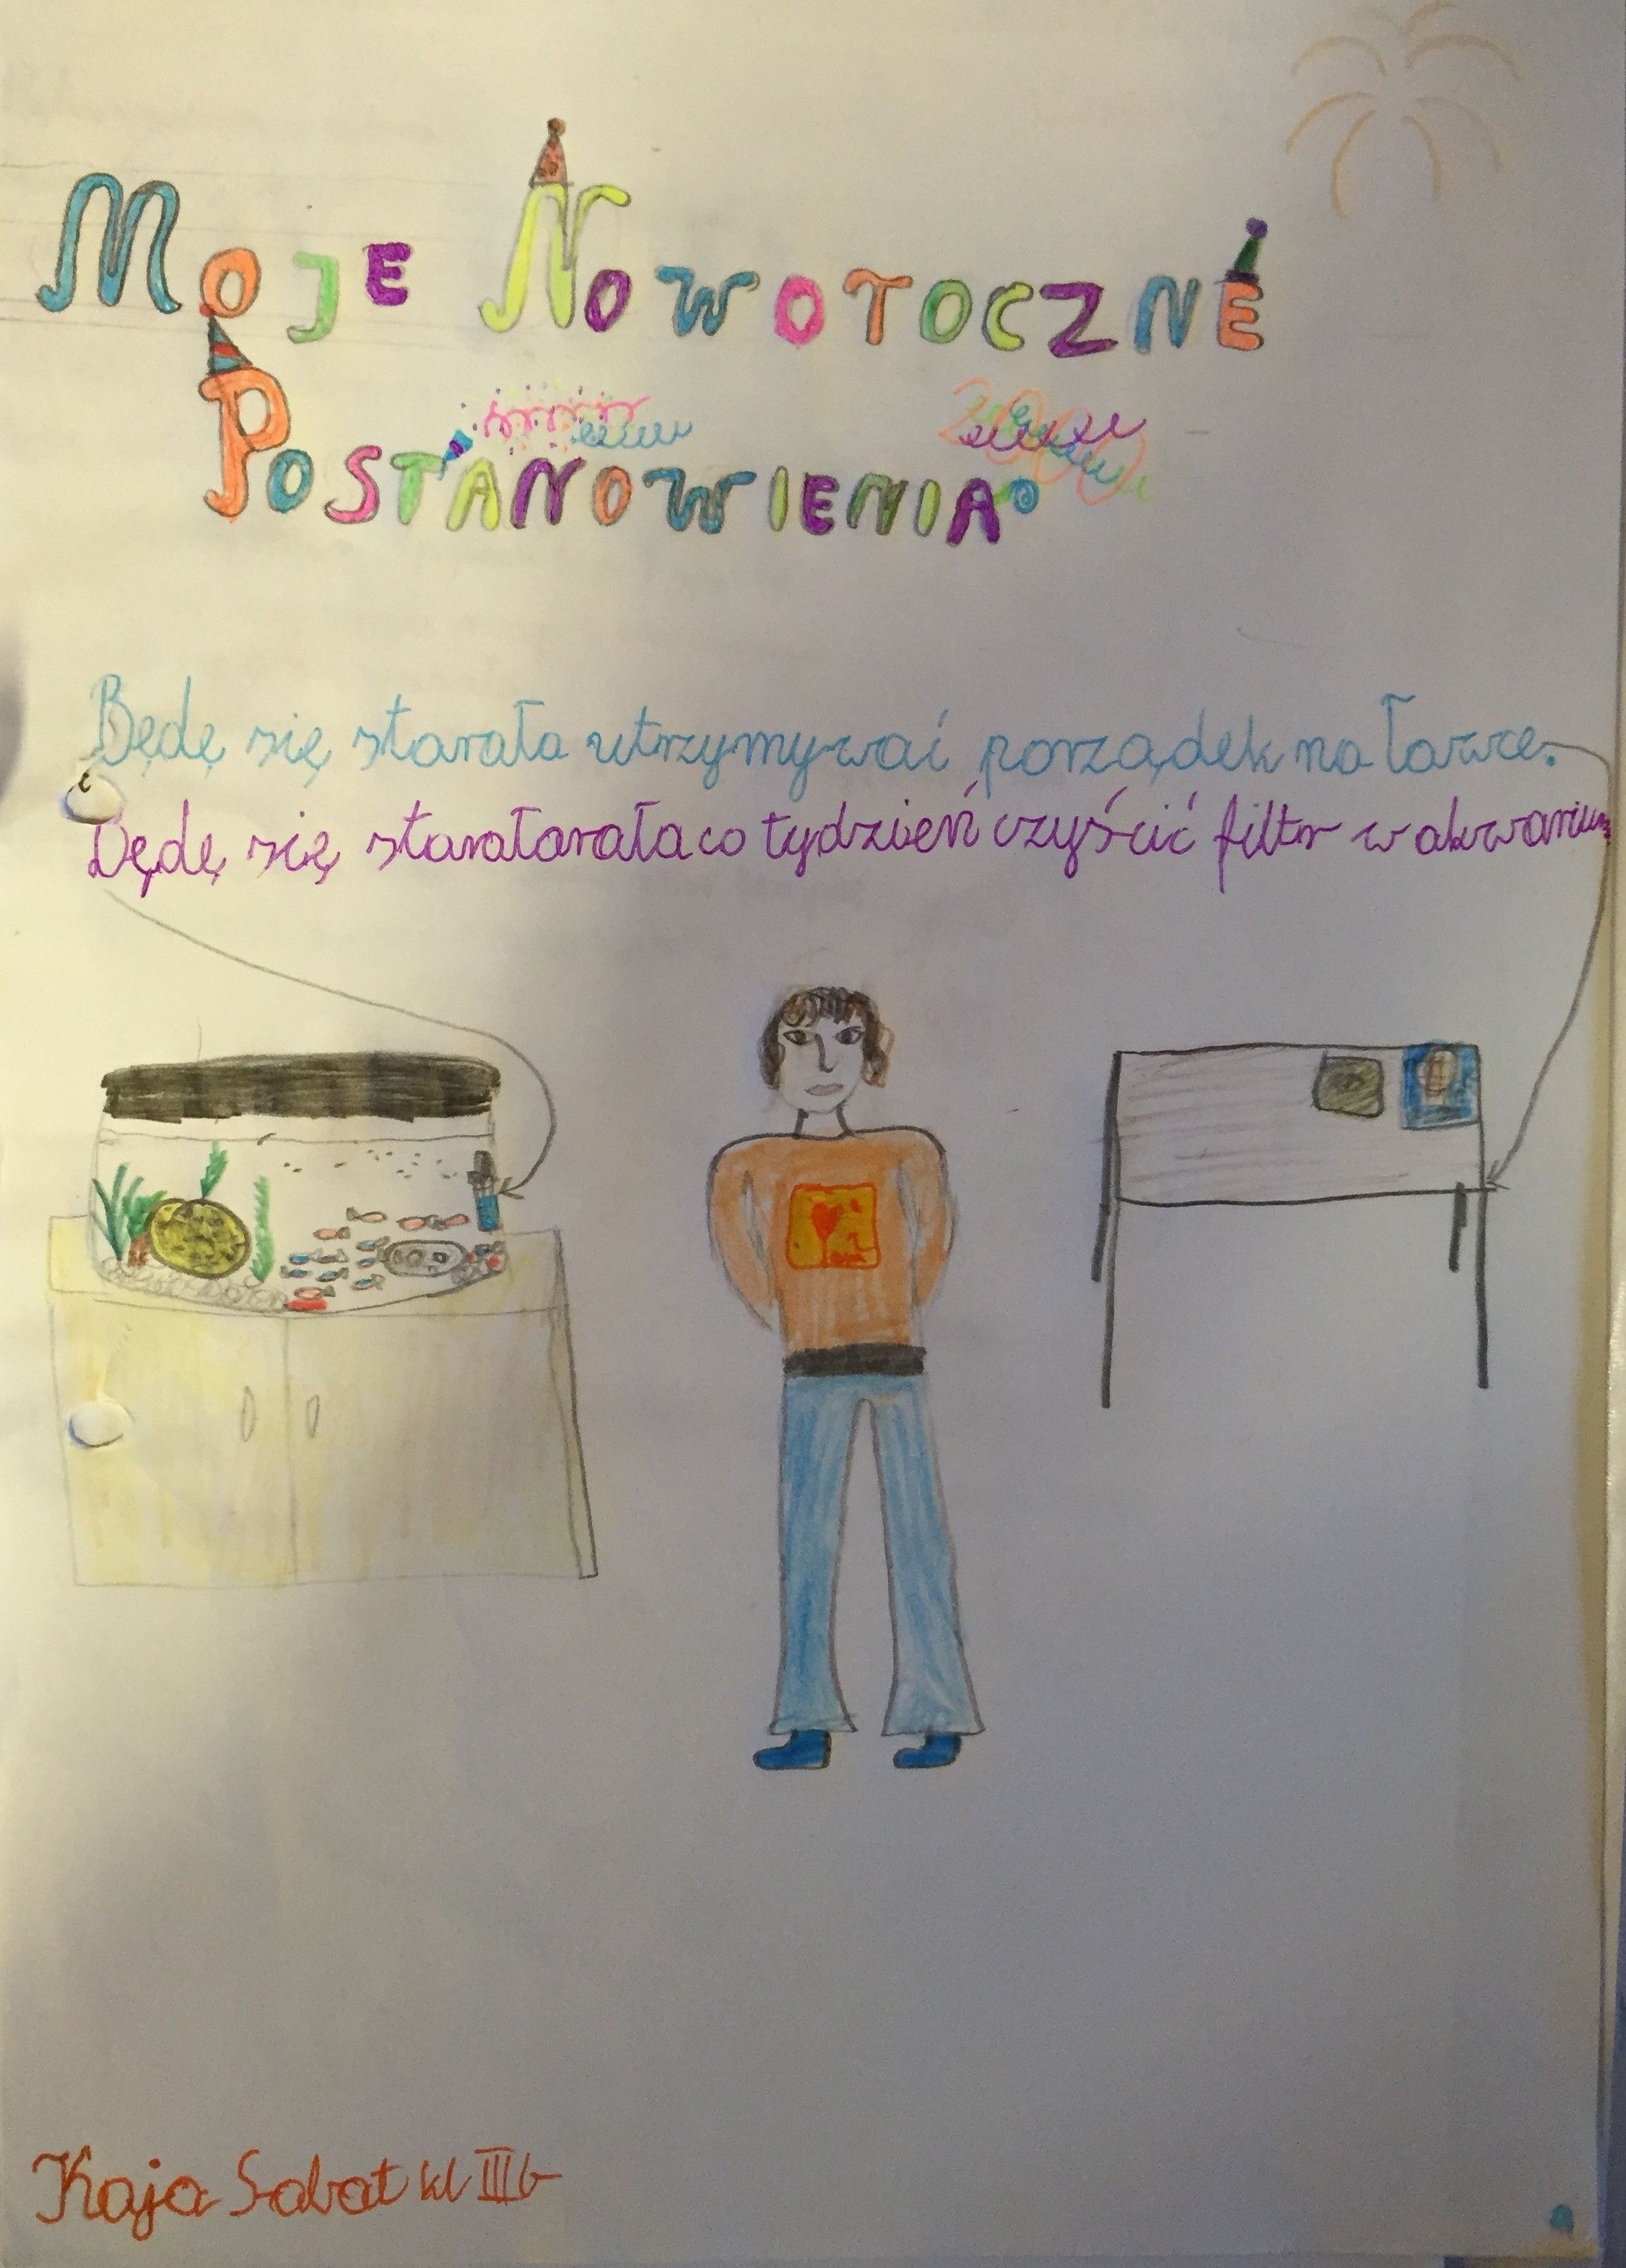 Moje Nowotoczne
Postanowienia
Będę się starała utrzymywać porządek na ławce.
Będę się staratarała co tydzień czyścić filtr w akwarium
Kaja Sabat kl IIIb